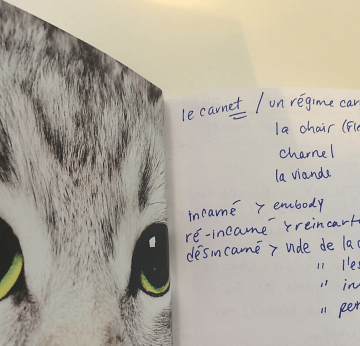 le carnet / un régime car
la chair (Fle
charnel
la viande
incarné > embody
ré-incarné > reincart
désincarné > vide de la c
" l'es
" in
" per